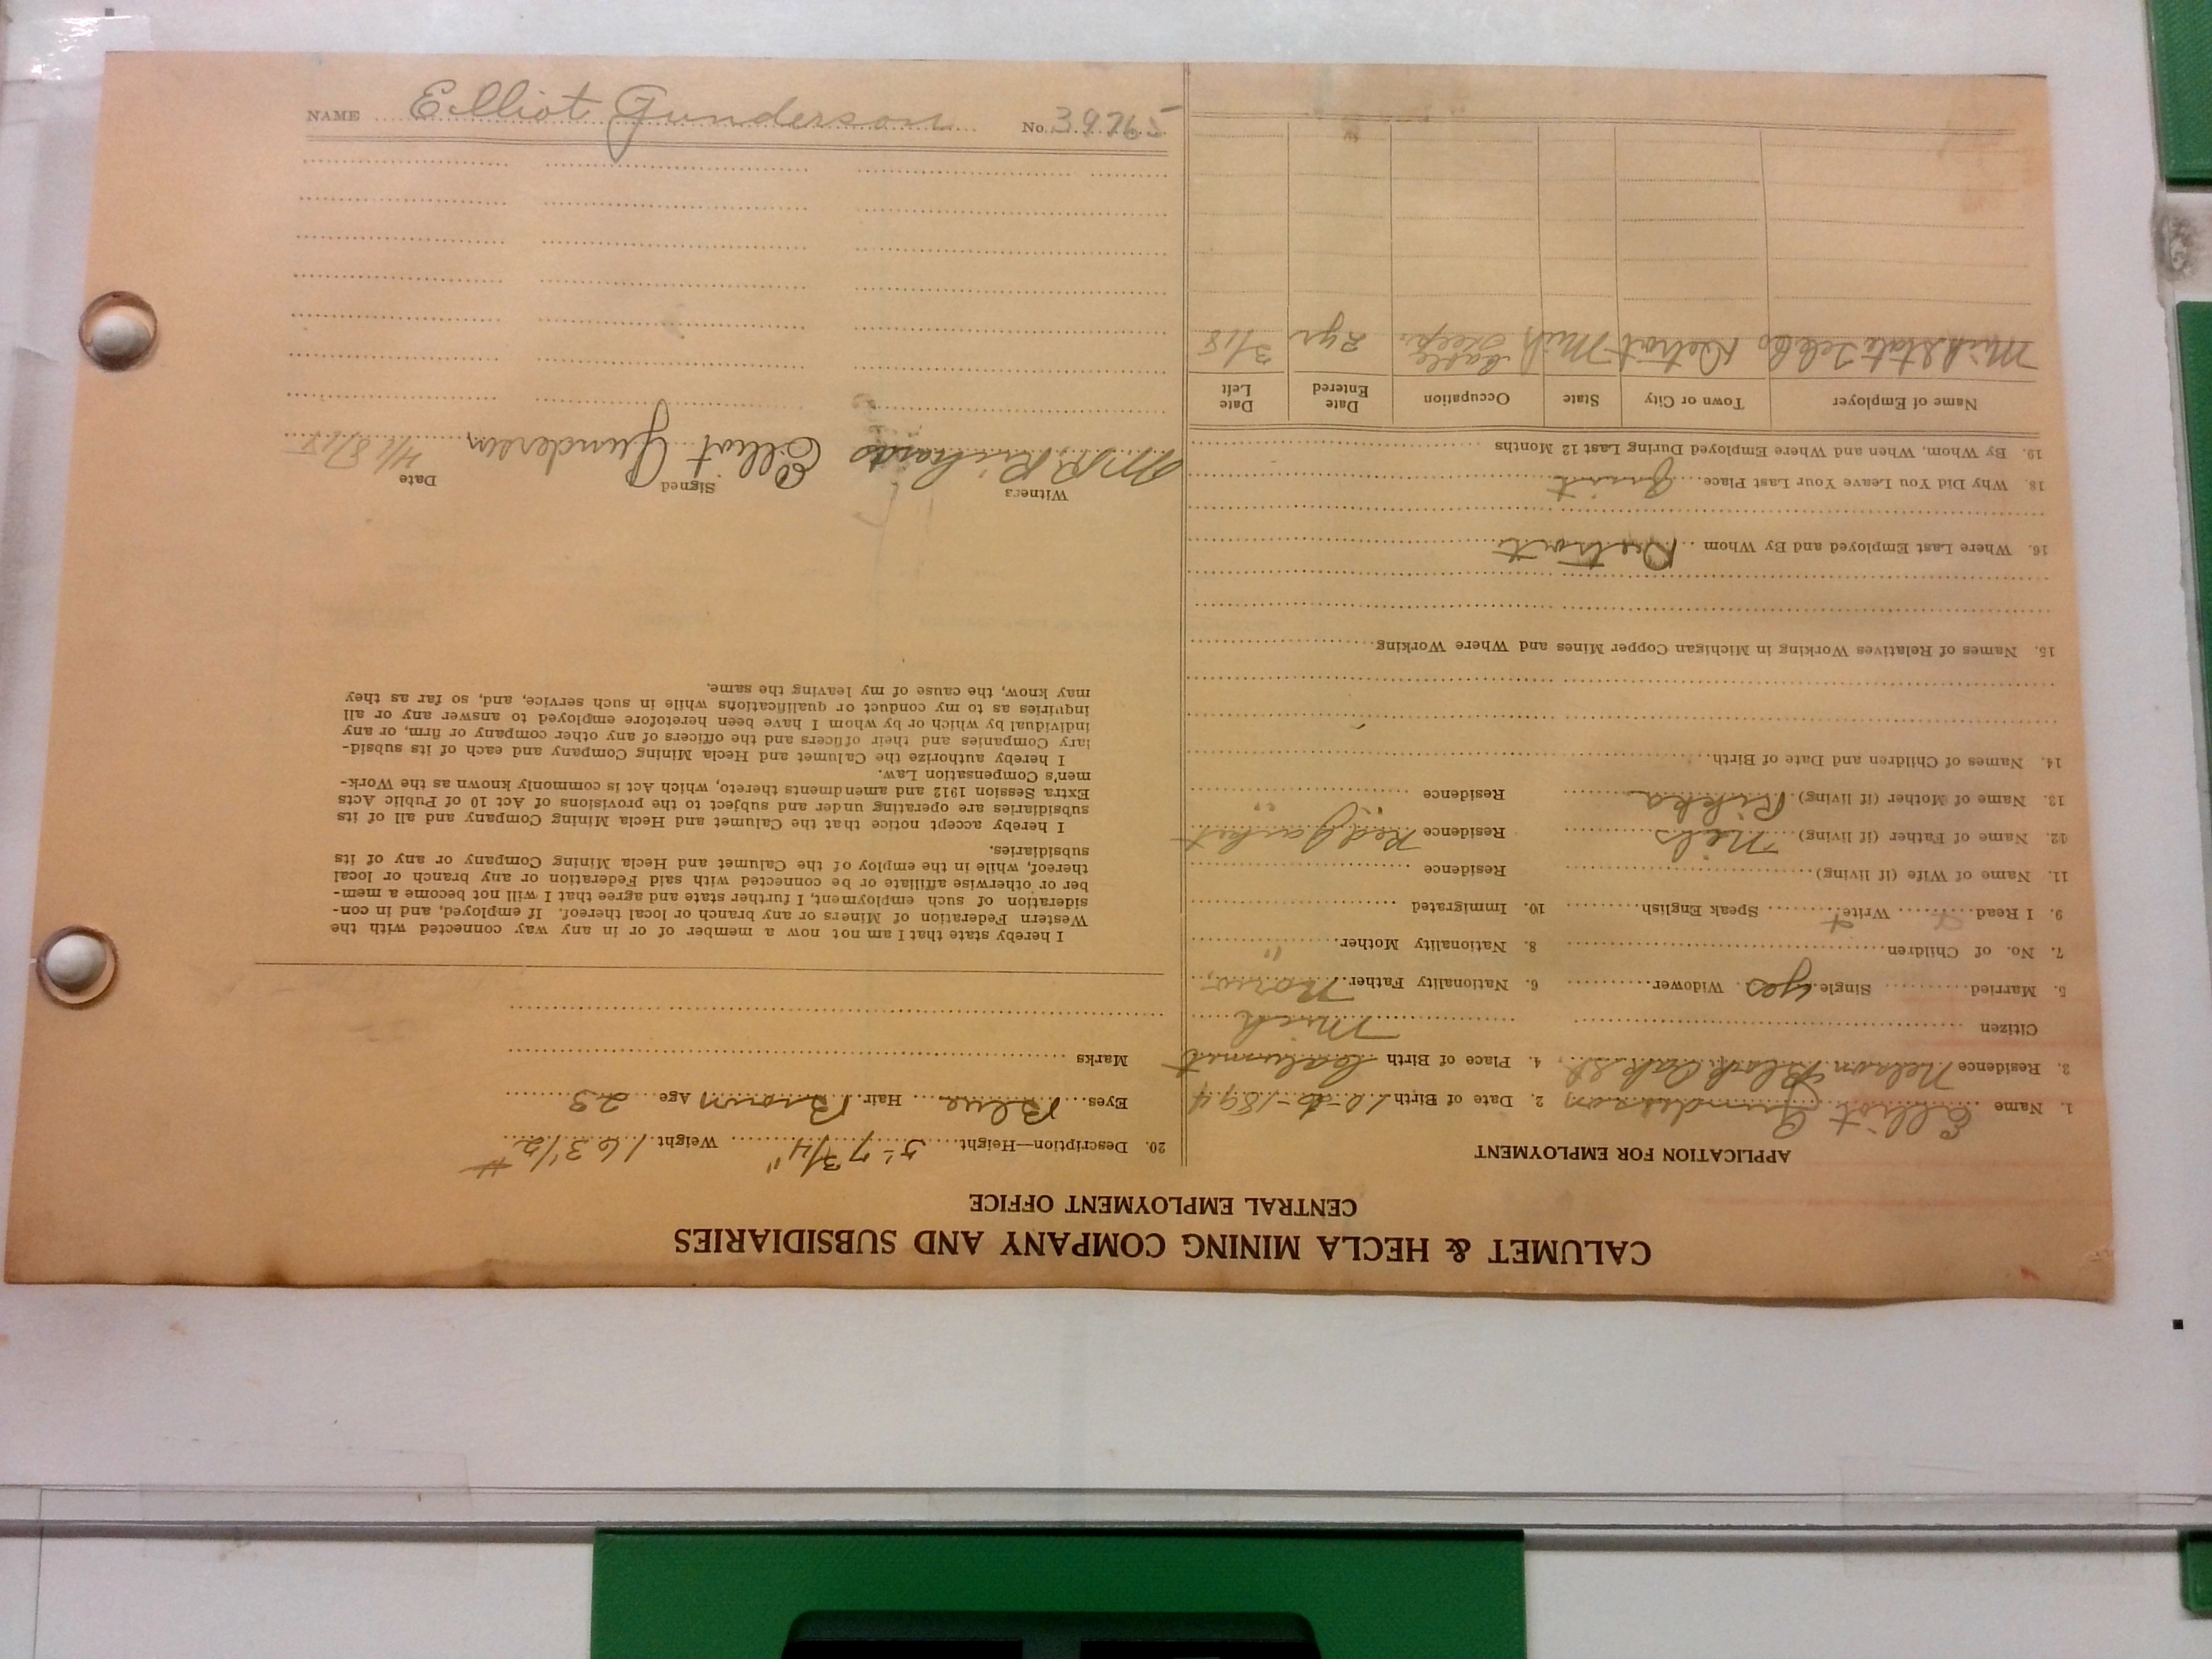 NAME Elliot Gunderson No. 39765
CALUMET & HECLA MINING COMPANY AND SUBSIDIARIES
CENTRAL EMPLOYMENT OFFICE
APPLICATION FOR EMPLOYMENT
1. Name Elliot Gunderson 2. Date of Birth 1894
3. Residence Nelson Block Oak St. 4. Place of Birth Calumet
Citizen Mich
5. Married Single yes Widower 6. Nationality Father Norw.
7. No. of Children 8. Nationality Mother "
9. I Read Write Speak English 10. Immigrated
11. Name of Wife (if living) Residence
12. Name of Father (if living) Nels Residence Red Jacket
13. Name of Mother (if living) Rikka Residence " "
14. Names of Children and Date of Birth
15. Names of Relatives Working in Michigan Copper Mines and Where Working
16. Where Last Employed and By Whom Detroit
18. Why Did You Leave Your Last Place Quit
19. By Whom, When and Where Employed During Last 12 Months
Name of Employer Town or City State Occupation Date Entered Date Left
Mich State Tel Co Detroit Mich Cable 2 yr 3/18
20. Description—Height 5' 7 3/4" Weight 163 1/2 #
Eyes Blue Hair Brown Age 23
Marks
I hereby state that I am not now a member of or in any way connected with the
Western Federation of Miners or any branch or local thereof. If employed, and in con-
sideration of such employment, I further state and agree that I will not become a mem-
ber or otherwise affiliate or be connected with said Federation or any branch or local
thereof, while in the employ of the Calumet and Hecla Mining Company or any of its
subsidiaries.
I hereby accept notice that the Calumet and Hecla Mining Company and all of its
subsidiaries are operating under and subject to the provisions of Act 10 of Public Acts
Extra Session 1912 and amendments thereto, which Act is commonly known as the Work-
men's Compensation Law.
I hereby authorize the Calumet and Hecla Mining Company and each of its subsid-
iary Companies and their officers and the officers of any other company or firm, or any
individual by which or by whom I have been heretofore employed to answer any or all
inquiries as to my conduct or qualifications while in such service, and, so far as they
may know, the cause of my leaving the same.
Witness Signed Date
Richards Elliot Gunderson 4/18/18